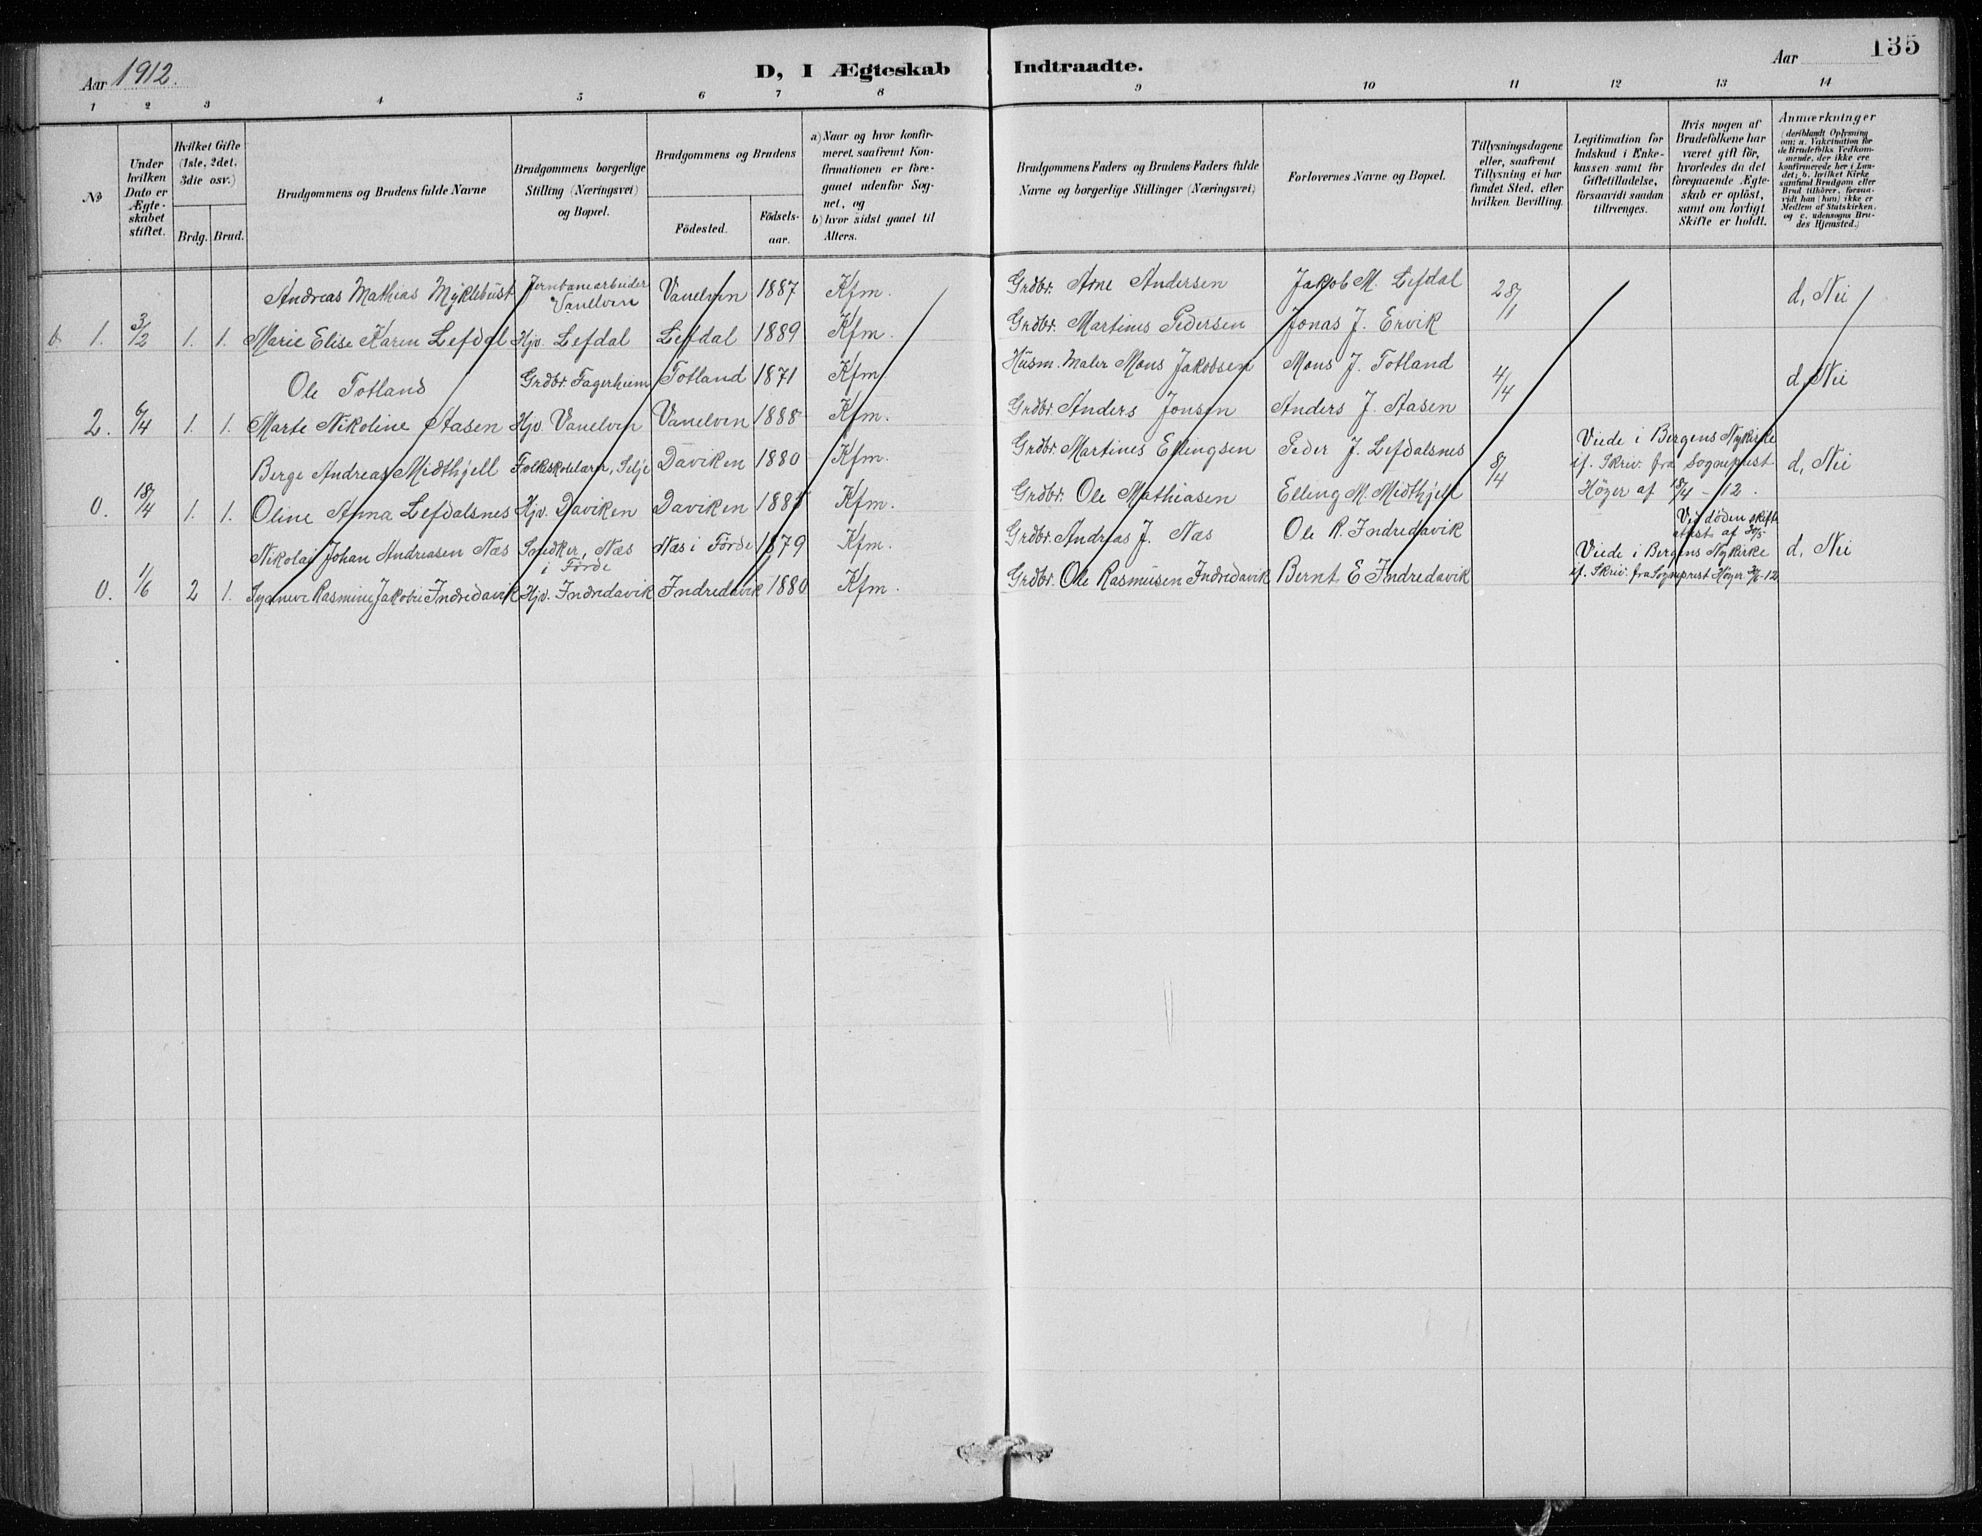 Aar 1912.
D, I Ægteskab Indtraadte.
Aar
135
1 2 3 4 5 6 7 8 9 10 11 12 13 14
No
Under hvilken Dato er Ægteskabet stiftet.
Hvilket Gifte (1ste, 2det, 3die osv.)
Brdg. Brud.
Brudgommens og Brudens fulde Navne
Brudgommens borgerlige Stilling (Næringsvei) og Bopæl.
Brudgommens og Brudens
Födested. Födselsaar.
a) Naar og hvor konfirmeret, saafremt Konfirmationen er foregaaet udenfor Sognet, og
b) hvor sidst gaaet til Alters.
Brudgommens Faders og Brudens Faders fulde Navne og borgerlige Stillinger (Næringsvei)
Forlovernes Navne og Bopæl.
Tillysningsdagene eller, saafremt Tillysning ei har fundet Sted, efter hvilken Bevilling.
Legitimation for Indskud i Enkekassen samt for Giftetilladelse, forsaavidt saadan tiltrænges.
Hvis nogen af Brudefolkene har været gift før, hvorledes da det foregaaende Ægteskab er opløst, samt om lovligt Skifte er holdt.
Anmærkninger
(deriblandt Oplysning om: a. Vakcination for de Brudefolks Vedkommende, der ikke ere konfirmerede her i Landet; b. hvilket Kirkesamfund Brudgom eller Brud tilhører, forsaavidt han (hun) ikke er Medlem af Statskirken, og c. udensogns Brudes Hjemsted.)
Andreas Mathias Myklebust Jernbanearbeider Vanelven Vanelven 1887 Kfm. Grdbr. Arne Andersen Jakob M. Lefdal 28/1 d, Nei
1. 3/2 1. 1. Marie Elise Karen Lefdal Hjv. Lefdal Lefdal 1889 Kfm. Grdbr. Martinus Pedersen Jonas J. Ervik
Ole Totland Grdbr. Fagerheim Totland 1871 Kfm Husm. Maler Mons Jakobsen Mons J. Totland 4/4 d, Nei
2. 6/4 1. 1. Marte Nikoline Aasen Hjv. Vanelven Vanelven 1888 Kfm. Grdbr. Anders Jonsen Anders J. Aasen
Berge Andreas Midthjell Folkskolelærer, Selje Daviken 1880 Kfm. Grdbr. Martines Ellingsen Peder J. Lefdalsnes 8/4 Viede i Bergens Nykirke if. Skriv. fra Sogneprest d, Nei
0. 18/4 1. 1. Oline Anna Lefdalsnes Hjv. Daviken Daviken 1885 Kfm. Grdbr. Ole Mathiasen Elling M. Midthjell Höyer af 18/4 - 12.
Nikolai Johan Andreasen Næs Snedker, Næs i Förde Næs i Förde 1879 Kfm. Grdbr. Andreas J. Næs Ole R. Indredavik Viede i Bergens Nykirke Ved döden skifteattest af 30/5 d, Nei
0. 1/6 2 1. Synneve Rasmine Jakobie Indredavik Hjv. Indredavik Indredavik 1880 Kfm. Grdbr. Ole Rasmusen Indredavik Bernt E Indredavik if. Skriv. fra Sogneprest Höyer